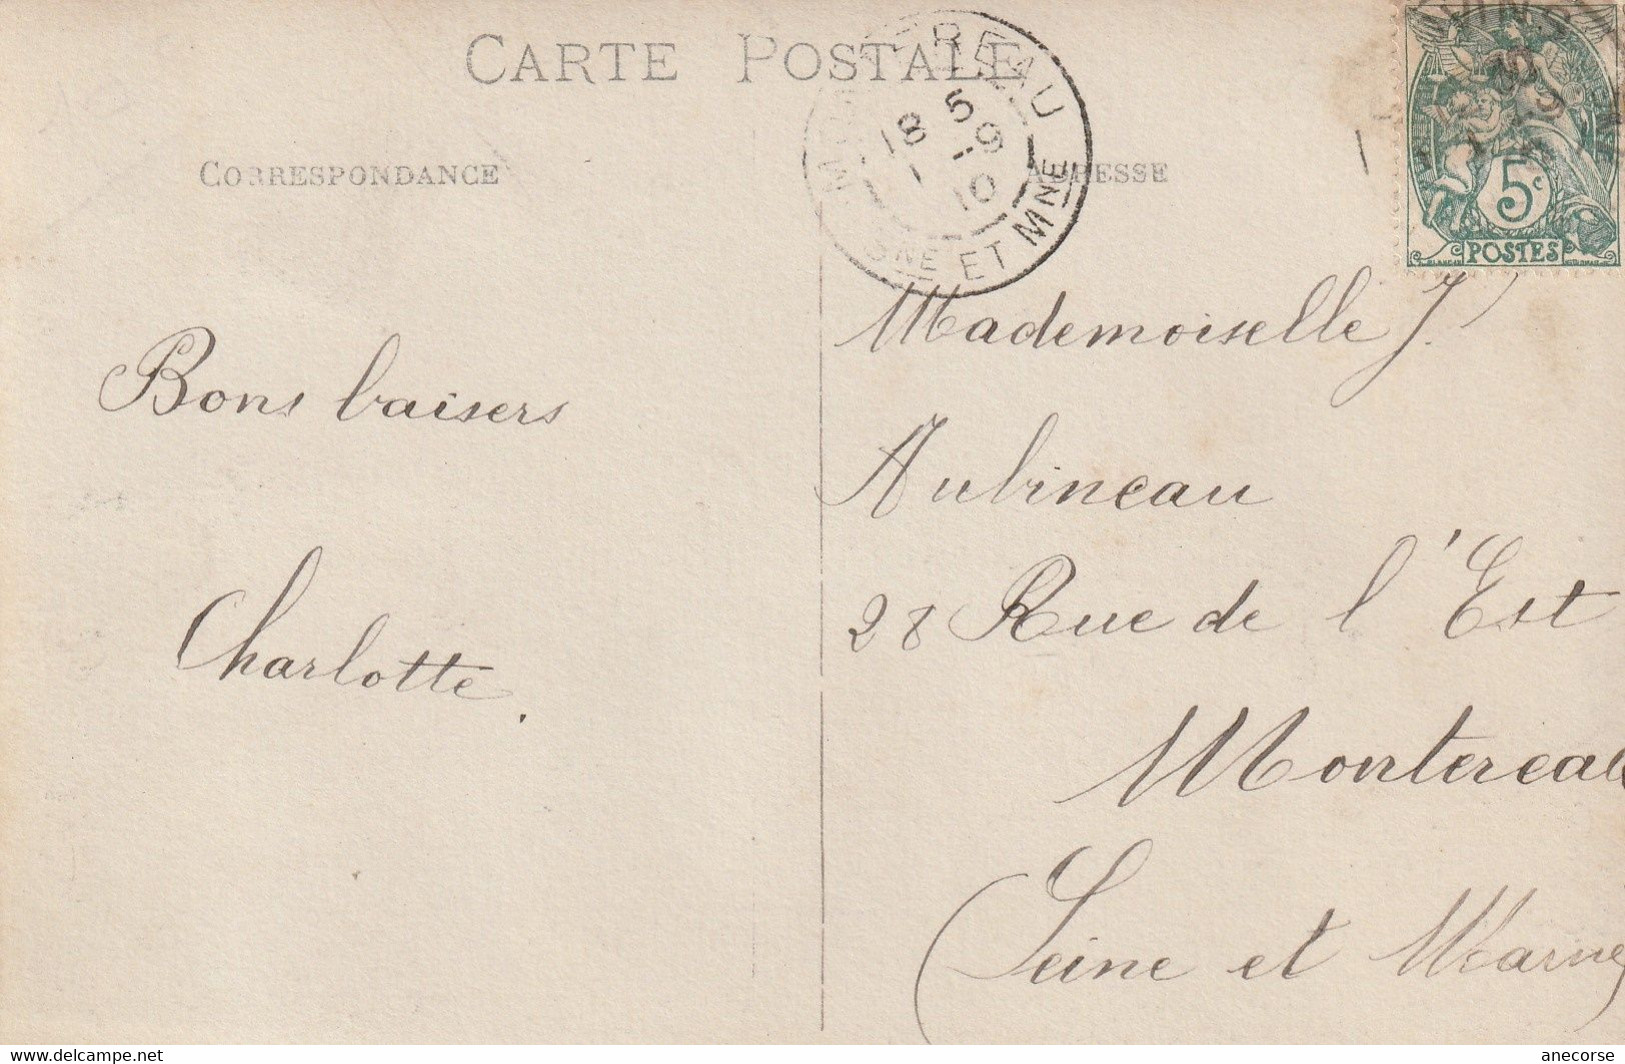 CARTE POSTALE
CORRESPONDANCE
ADRESSE
18 5
9
10
NE ET MNE
5c
POSTES
Bons baisers
Charlotte.
Mademoiselle J.
Aubineau
28 Rue de l'Est
Montereau
(Seine et Marne)
www.delcampe.net
anecorse